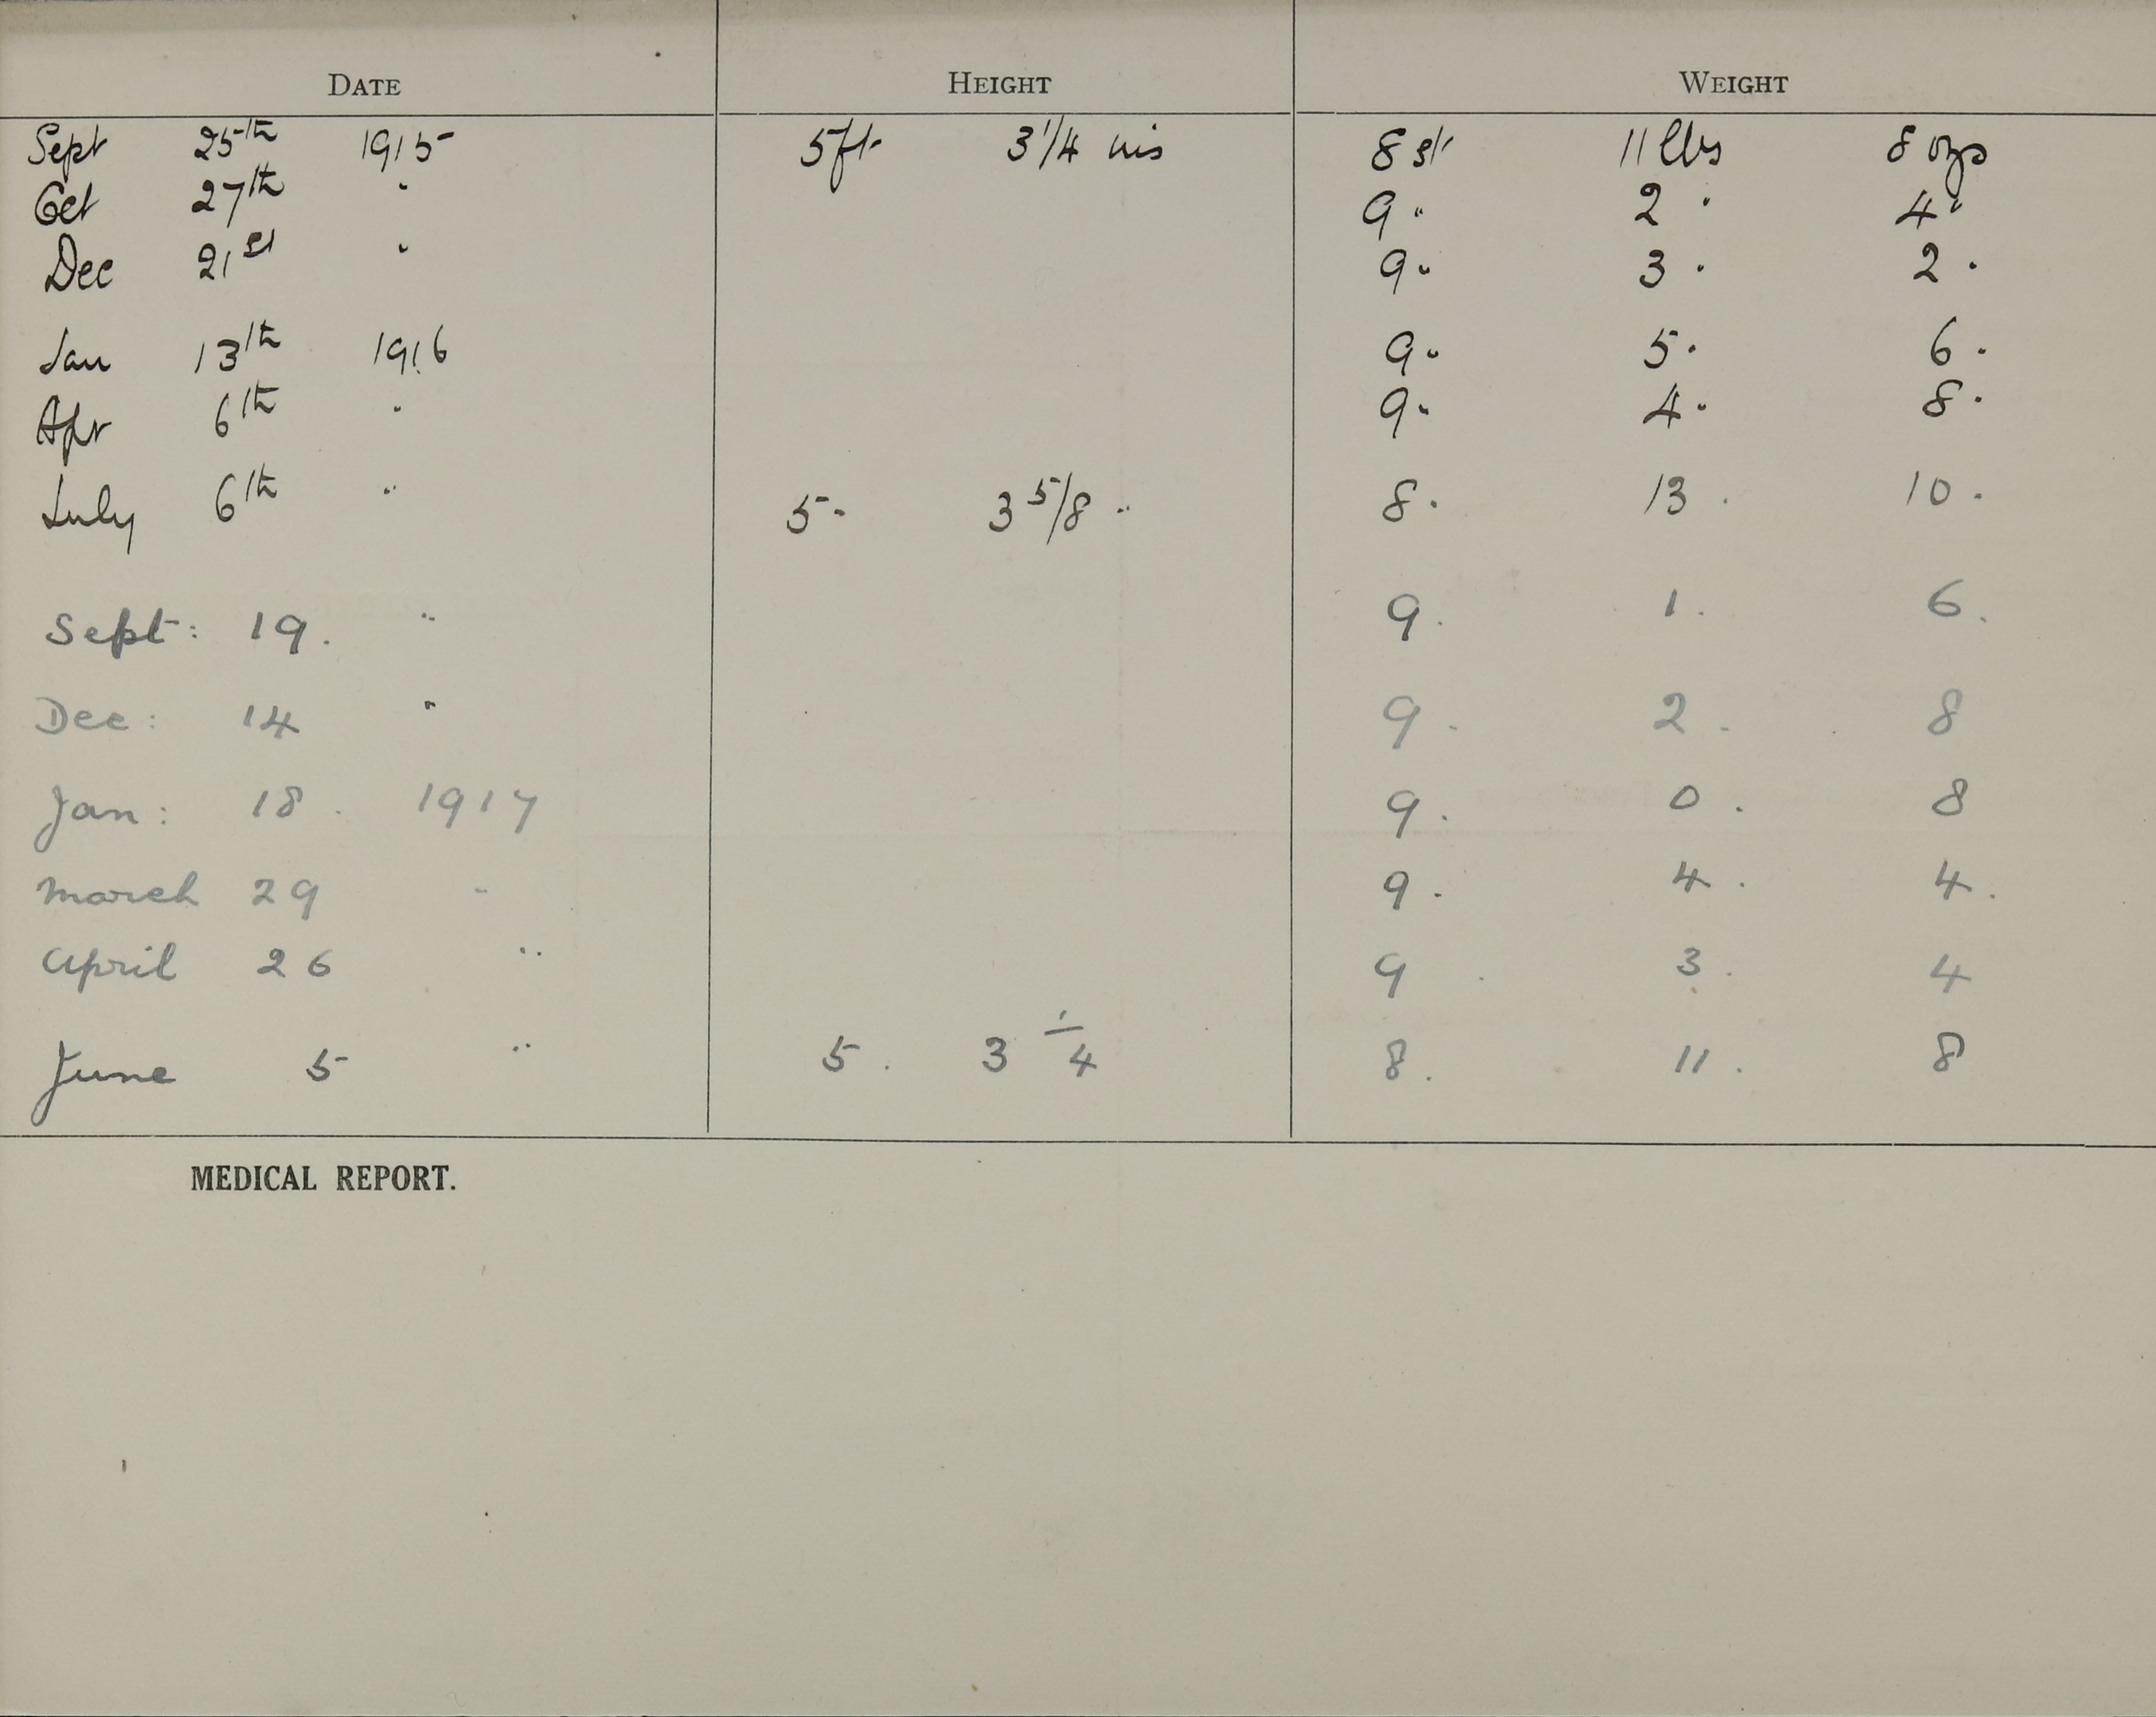 DATE HEIGHT WEIGHT
Sept 25th 1915 5ft 3 1/4 ins 8 st 11 lbs 8 ozs
Oct 27th " 9 " 2 " 4 "
Dec 21st " 9 " 3 " 2 "
Jan 13th 1916 9 " 5 " 6 "
Apr 6th " 9 " 4 " 8 "
July 6th " 5 " 3 5/8 " 8 " 13 " 10 "
Sept: 19. " 9. 1. 6.
Dec: 14 " 9. 2. 8
Jan: 18. 1917 9. 0. 8
March 29 " 9. 4. 4.
April 26 " 9. 3. 4
June 5 " 5. 3 1/4 8. 11. 8
MEDICAL REPORT.